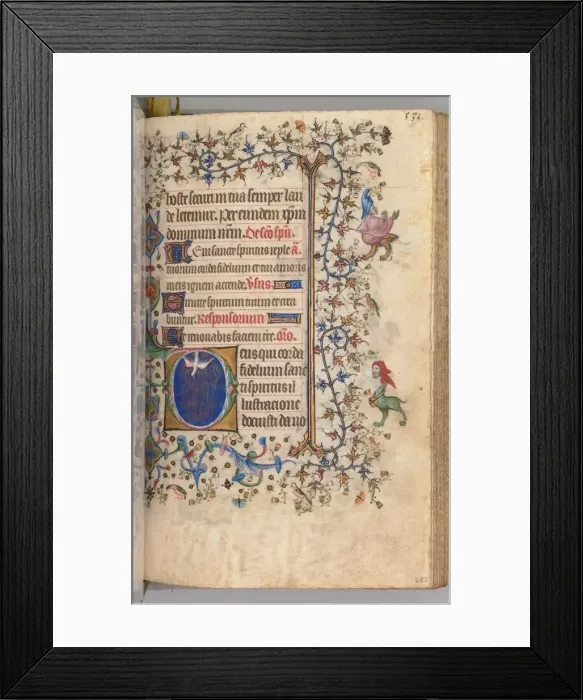 hoste securi in tua semper lau
de letemur. Per eundem xpm
dominum nrm. De sco spu.
Veni sancte spiritus reple a.
tuorum corda fidelium et tui amoris
in eis ignem accende. Vsus.
Emitte spiritum tuum et crea
buntur. Responsorium
Et renovabis faciem tre. Oro.
Deus qui corda
fidelium sanc
ti spiritus il
lustratione
docuisti da no